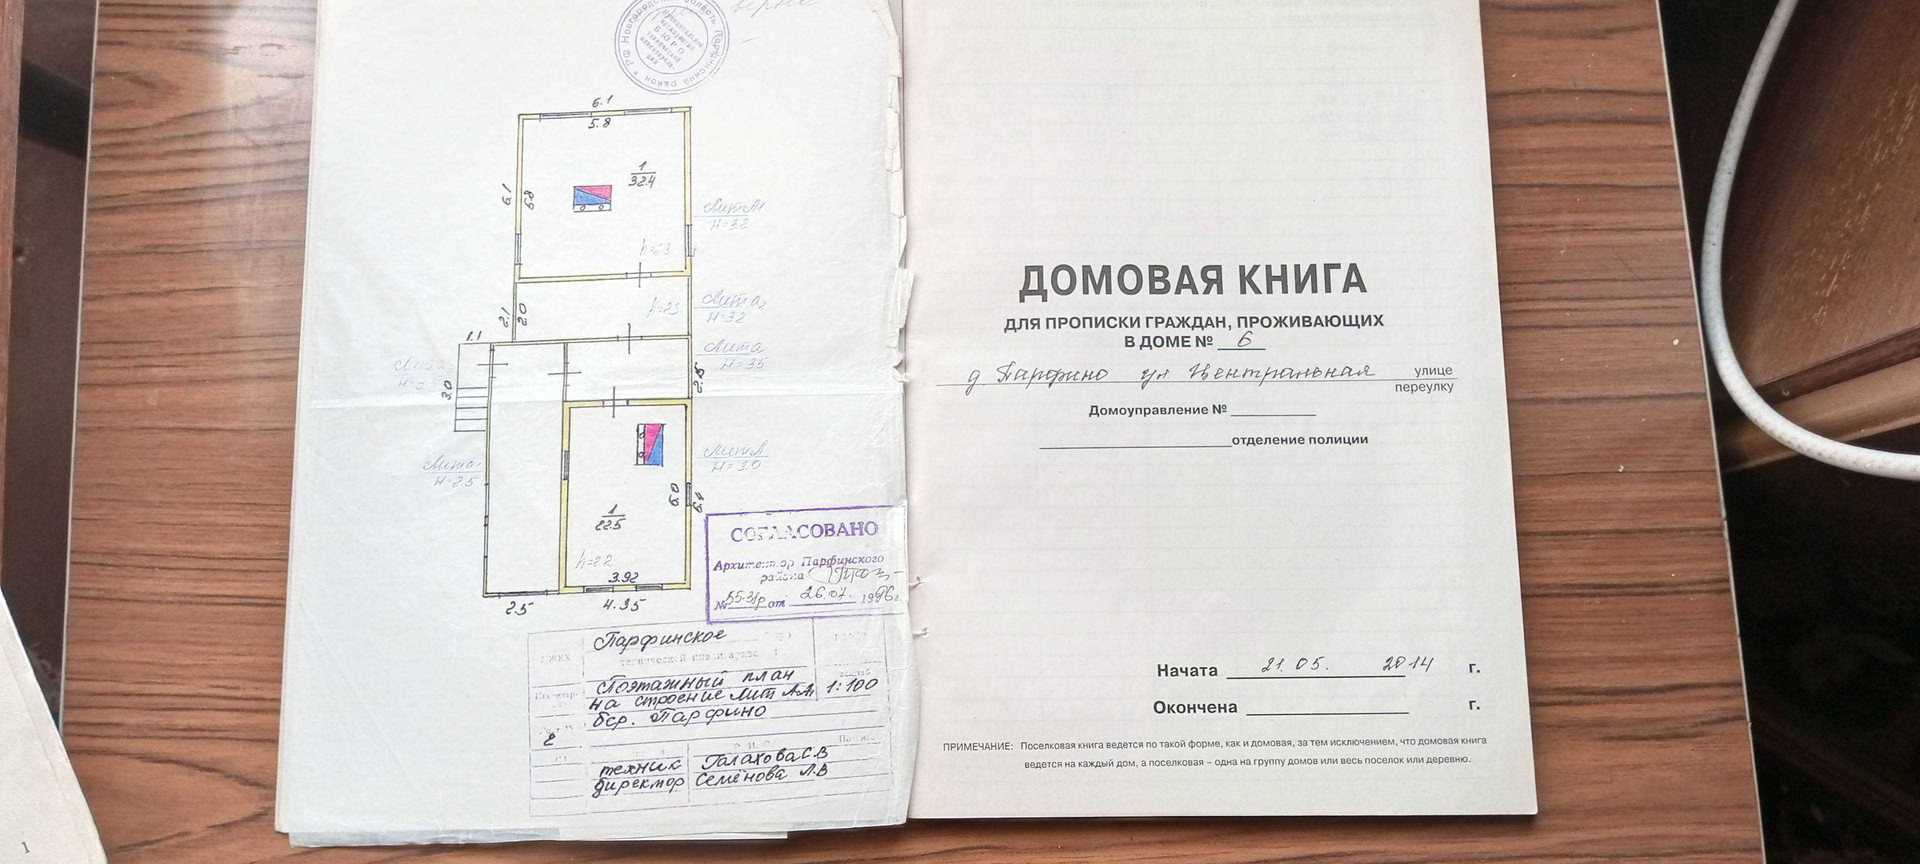 верны
Новгородская область Парфинский район
БЮРО
6.1
5.8
1
32.4
6.1
5.8
Лит А1
H=3.2
h=2.3
Лит а2
H=3.2
h=2.3
2.1
2.0
1.1
Лит а
H=3.5
2.15
3.0
Лит А
H=3.0
Лит а1
H=2.5
6.0
6.4
1
22.5
h=2.2
3.92
2.5
4.35
СОГЛАСОВАНО
Архитектор Парфинского
района
№ 55-31р от 26.07. 1996 г
Парфинское
технической инвентаризации
Поэтажный план
на строение Лит АА1
1:100
бср. Парфино
2
техник Галахова С.В
директор Семёнова Л.В
ДОМОВАЯ КНИГА
ДЛЯ ПРОПИСКИ ГРАЖДАН, ПРОЖИВАЮЩИХ
В ДОМЕ № 6
д. Парфино ул Центральная улице
переулку
Домоуправление №
отделение полиции
Начата 21.05. 2014 г.
Окончена г.
ПРИМЕЧАНИЕ: Поселковая книга ведется по такой форме, как и домовая, за тем исключением, что домовая книга
ведется на каждый дом, а поселковая – одна на группу домов или весь поселок или деревню.
1